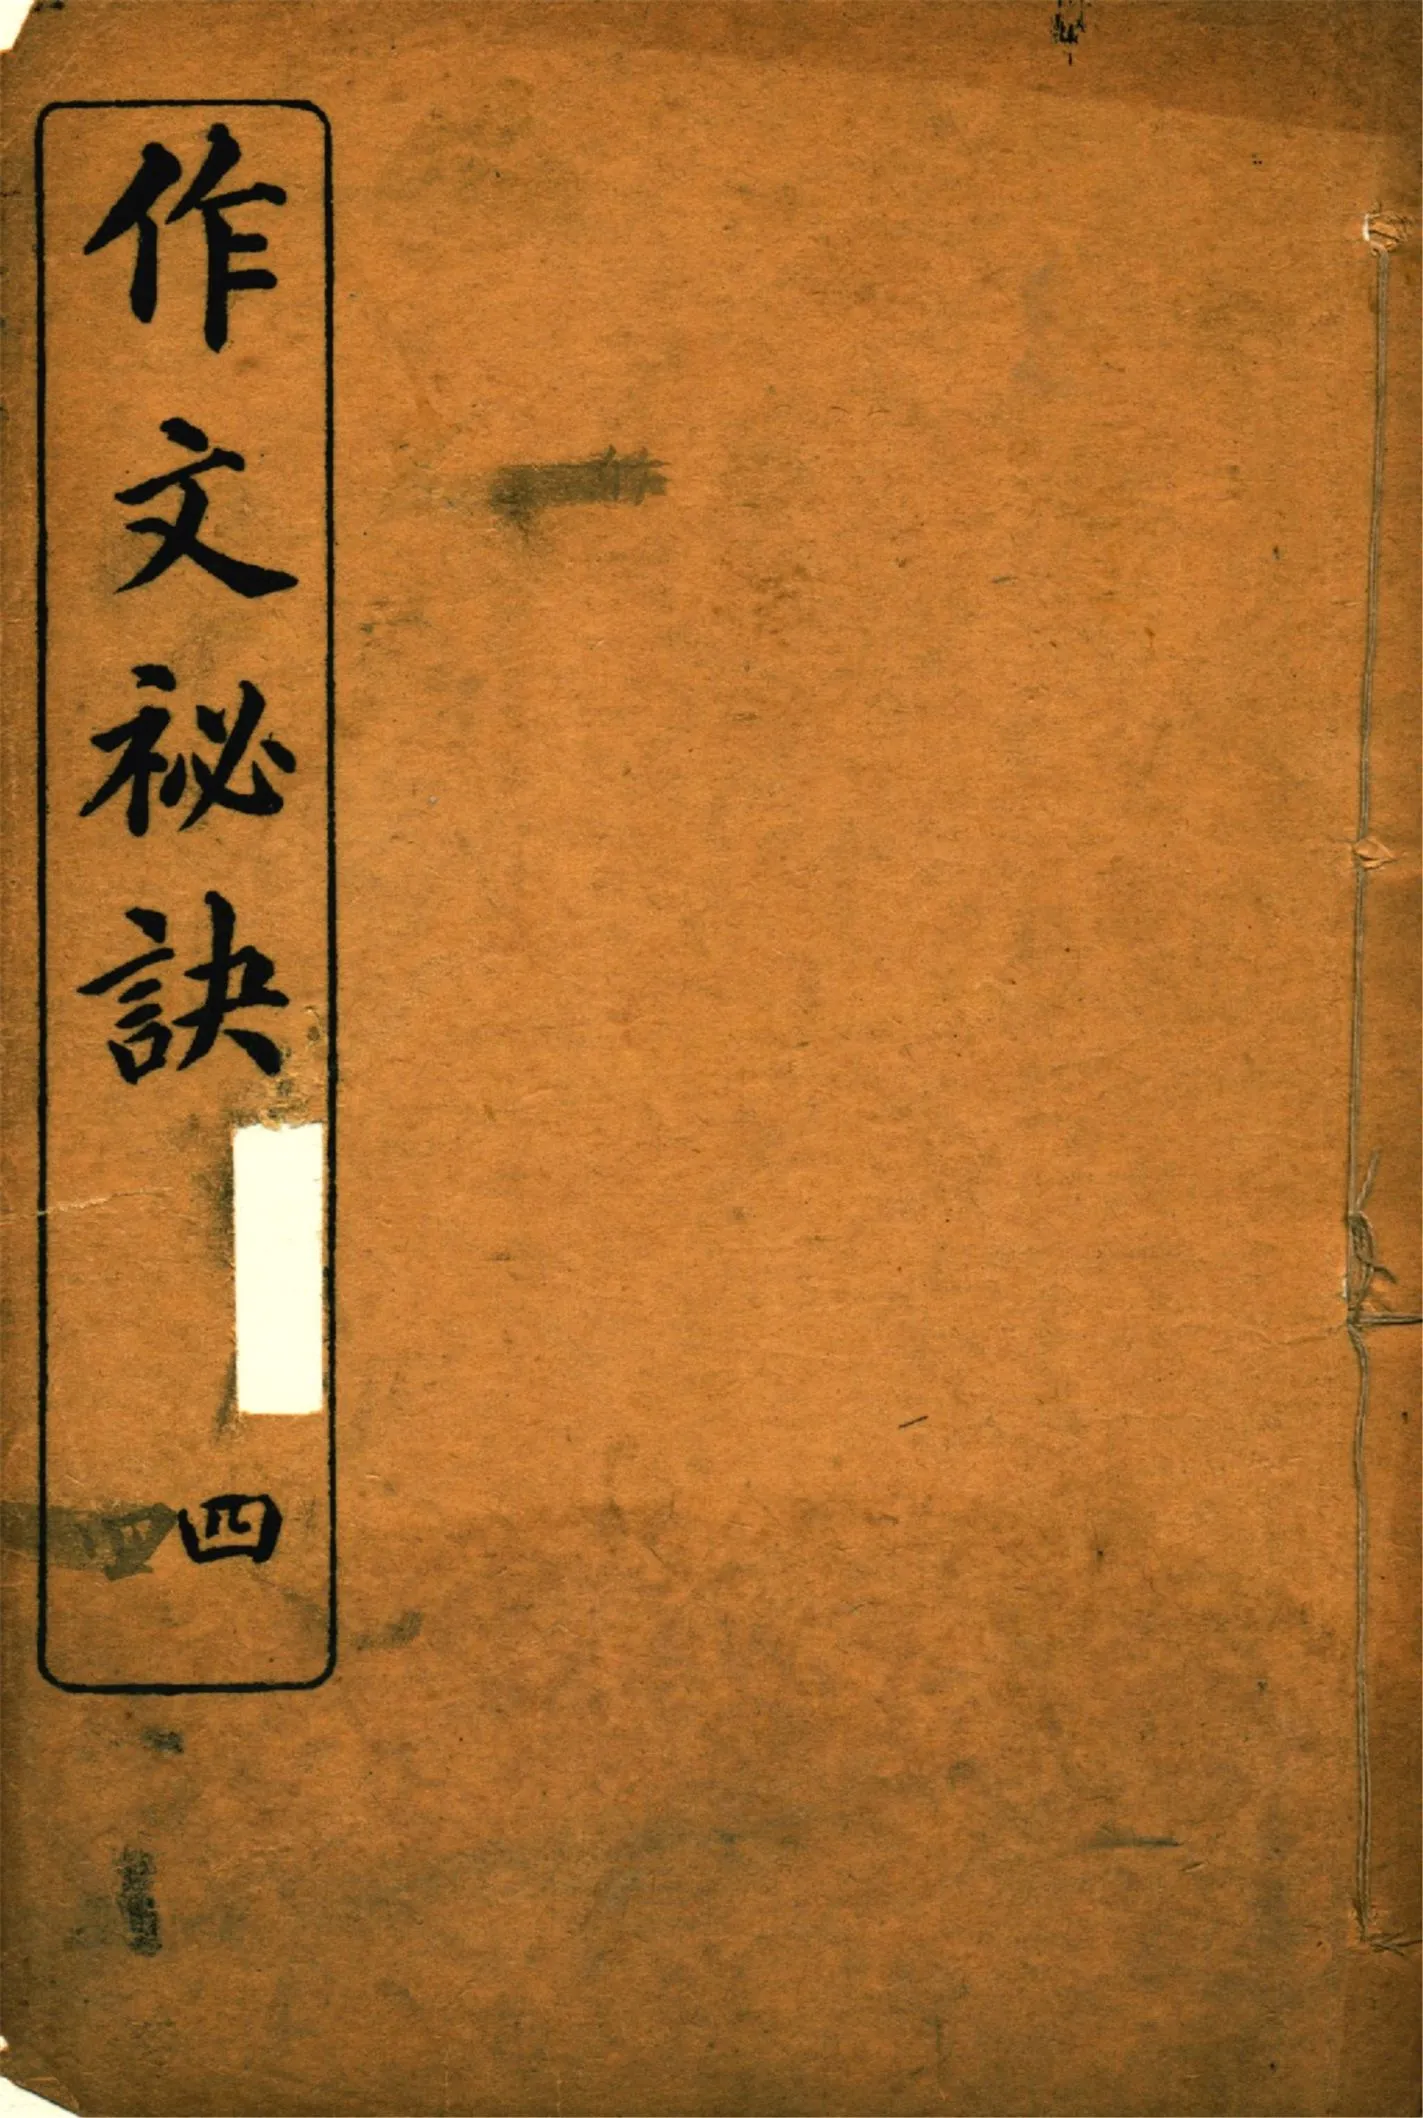 作文祕訣
四